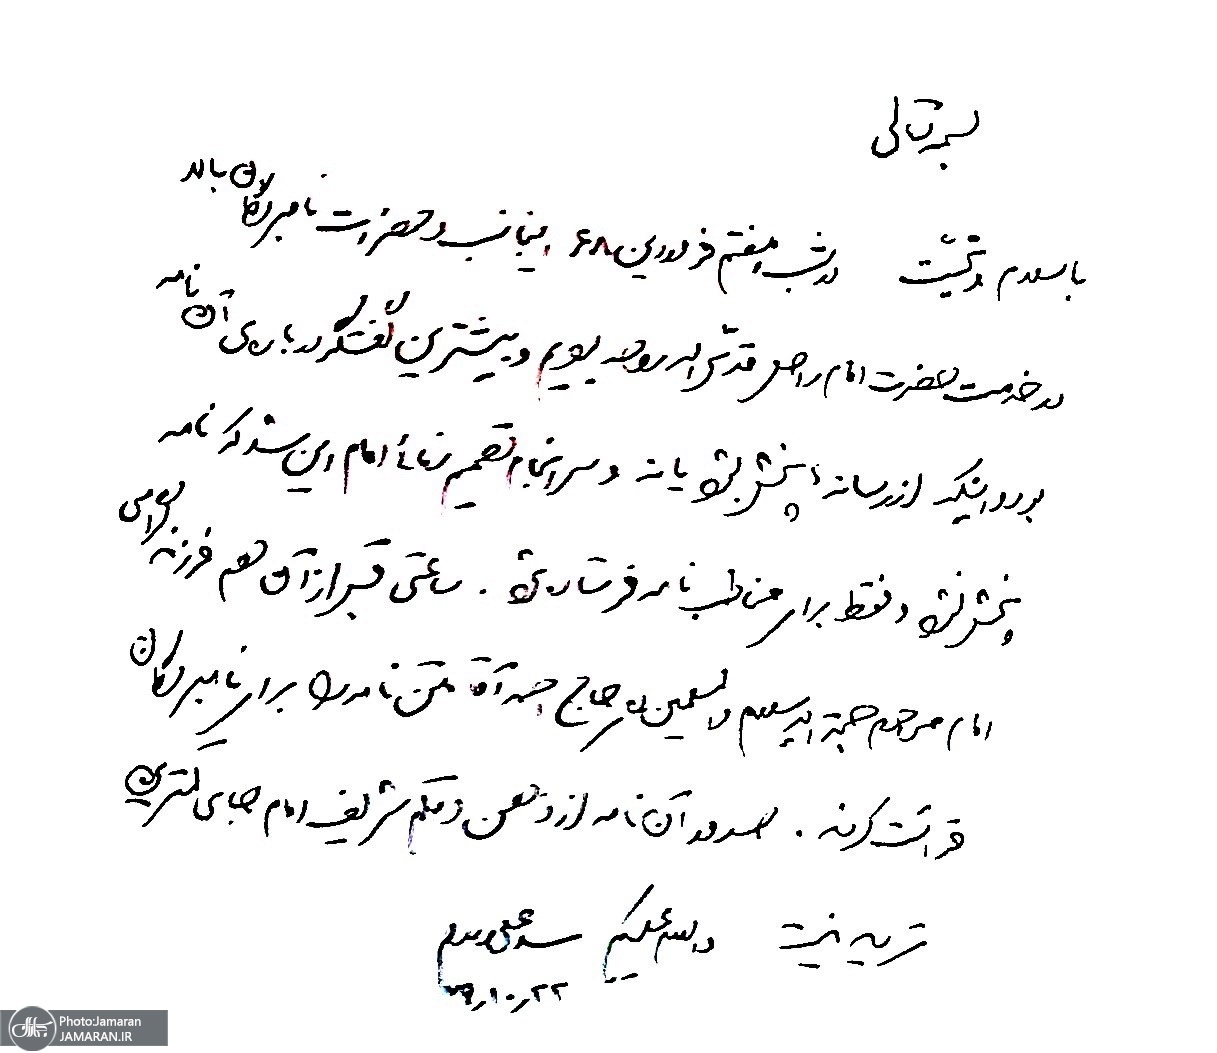 بسمه تعالی
با سلام و تحیّت در شب هفتم فروردین ۶۸ اینجانب و حضرات نامبردگان بالا
در خدمت حضرت امام راحل قدّس الله روحه بودیم و بیشترین گفتگو درباره‌ی آن نامه
بود و اینکه از رسانه‌ها پخش بشود یا نه و سرانجام تصمیم نهائی امام این شد که نامه
پخش نشود و فقط برای مخاطب نامه فرستاده شود . ساعتی قبل از آن هم فرزند گرامی
امام مرحوم حجة الاسلام والمسلمین حاج احمد آقا متن نامه را برای نامبردگان
قرائت کردند . صدور آن نامه از ذهن و قلم شریف امام جای کمترین
تردید نیست والسلام علیکم
۷۹٫۱۰٫۲۲
Photo:Jamaran
JAMARAN.IR